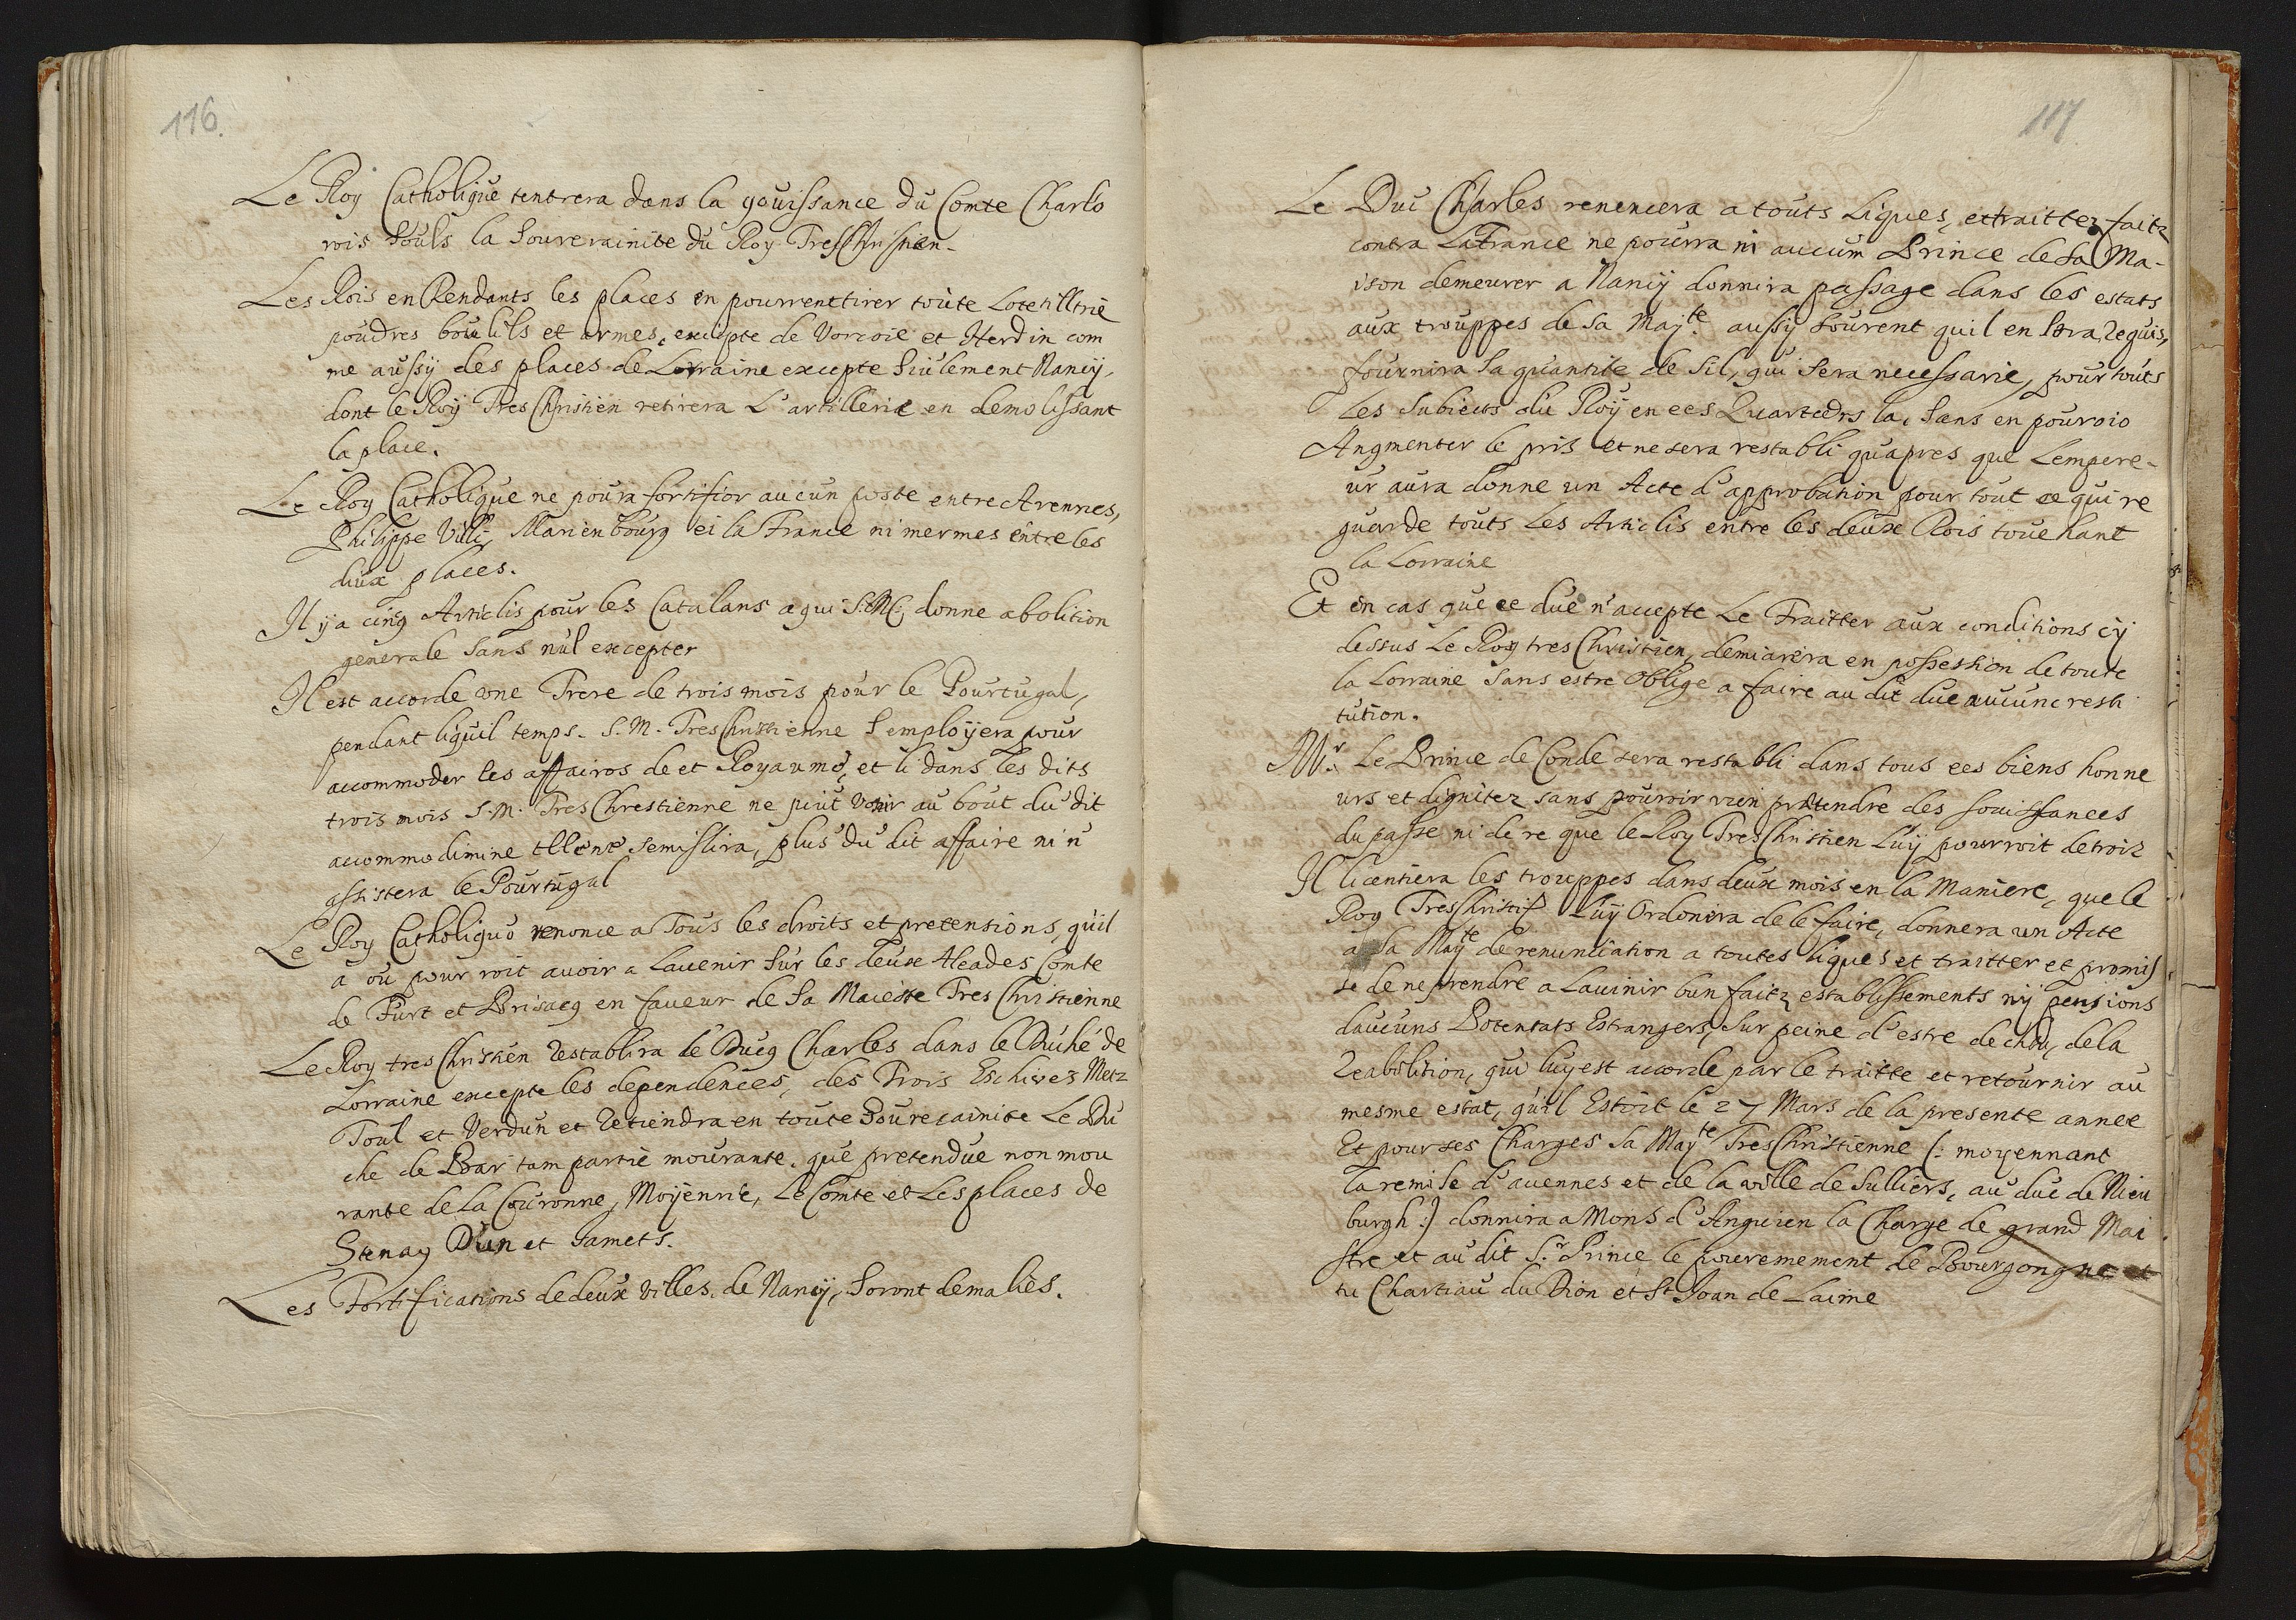 116.
Le Roy Catholique rentrera dans la youissance du Comte Charlo
rois souls la Souverainite du Roy Tres Christien-
Les Rois en Rendants les places en pourrent tirer toute Lotetilltrie
poudres boulils et armes, exciepte de Vorcoie et Herdin com
me aussy des places de Lorraine excepte siulement Nancy,
dont le Roy Tres Christien retirera L'artillerie en demolissant
la place.
Le Roy Catholique ne poura fortifior aucun poste entre Avennes,
Philippe Villi, Marienbourg ei la France ni mermes entre les
diux places.
Il y a cinq Articlis pour les Catalans a qui S.M. donne abolition
generale sans nul excepter
Il est accorde une Treve de trois mois pour le Pourtugal,
pendant liquil temps. S.M. Tres Christienne S'employera pour
accommoder les affairos de et Royaumé, et li dans les dits
trois mois S.M. Tres Chrestienne ne piut Venir au bout du dit
accommodimine Ellene semislira, plus du dit affaire ni n'
assistera le Pourtugal
Le Roy Catholiquo renonce a Tous les droits et pretensions, qu'il
a ou pour roit avoir a Lavenir sur les deux Aleades Comte
de Furt et Brisacq en faveur de Sa Maieste Tres Christienne
Le Roy tres Christien restablira le Ducq Charles dans le Duché de
Lorraine excepte les dependences, des Trois Eschives Metz
Toul et Verdun et retiendra en toute Souverainite Le Du
che de Bar tam partie mourante, que pretendue non mou
rante de la Couronne, Moyenvie, Le Comte et Les places de
Stenay Dun et Jamets.
Les Fortifications de deux villes de Nancy, Soront demalies.
117
Le Duc Charles renencera a touts Liques, et traittez faitz
contra La France ne pourra ni auccum Prince de sa Ma-
ison demeurer a Nancy donnira passage dans les estats
aux trouppes de sa Majte. aussy sourent quil en sera requis,
fournira sa quantite de sil, qui sera necessarie, pour touts
Les Subiects du Roy en ces Quartedrs la, sans en pourvio
Augmenter le pris et ne sera restabli qu'apres que Lempere-
ur aura donne un Acte d'approbation pour tout ce qui re
guarde touts Les Articlis entre les deux Rois touchant
la Lorraine
Et en cas que ce duc n'accepte Le Traitter aux conditions cy
dessus Le Roy tres Christien, demiarera en possession de toute
la Lorraine sans estre Oblige a faire au dit duc aucune resti
tution.
Mr. Le Prince de Conde sera restabli dans tous ces biens honne
urs et dignitez sans pouvoir rien pretendre des Jouissances
du passe ni de re que le Roy Tres Christien Luy pourroit detroir
Il licentiera les trouppes dans deux mois en la Maniere, que le
Roy Tres Christi Luy Ordonira de le faire, donnera un Acte
a Sa Mayte de renuntiation a toutes liques et traitter et promis
se de ne prendre a Lavinir bun faitz establissements ny pensions
daucuns Potentats Estrangers, sur peine d'estre dechau, de la
reabolition, qui luy est accorde par le traitte et retournir au
mesme estat, qu'il Estoit le 27 Mars de la presente annee
Et pour ses Charges sa Mayte Tres Christienne (: moyennant
la remise d'avennes et de la ville de Sulliers, au duc de Nieu
burgh :) donnira a Mons d'Anguien la Charge de grand Mai
stre et au dit Sr. Prince le pouvernement de Bourgongne et
tu Chartiau du Dion et St Joan de Laime